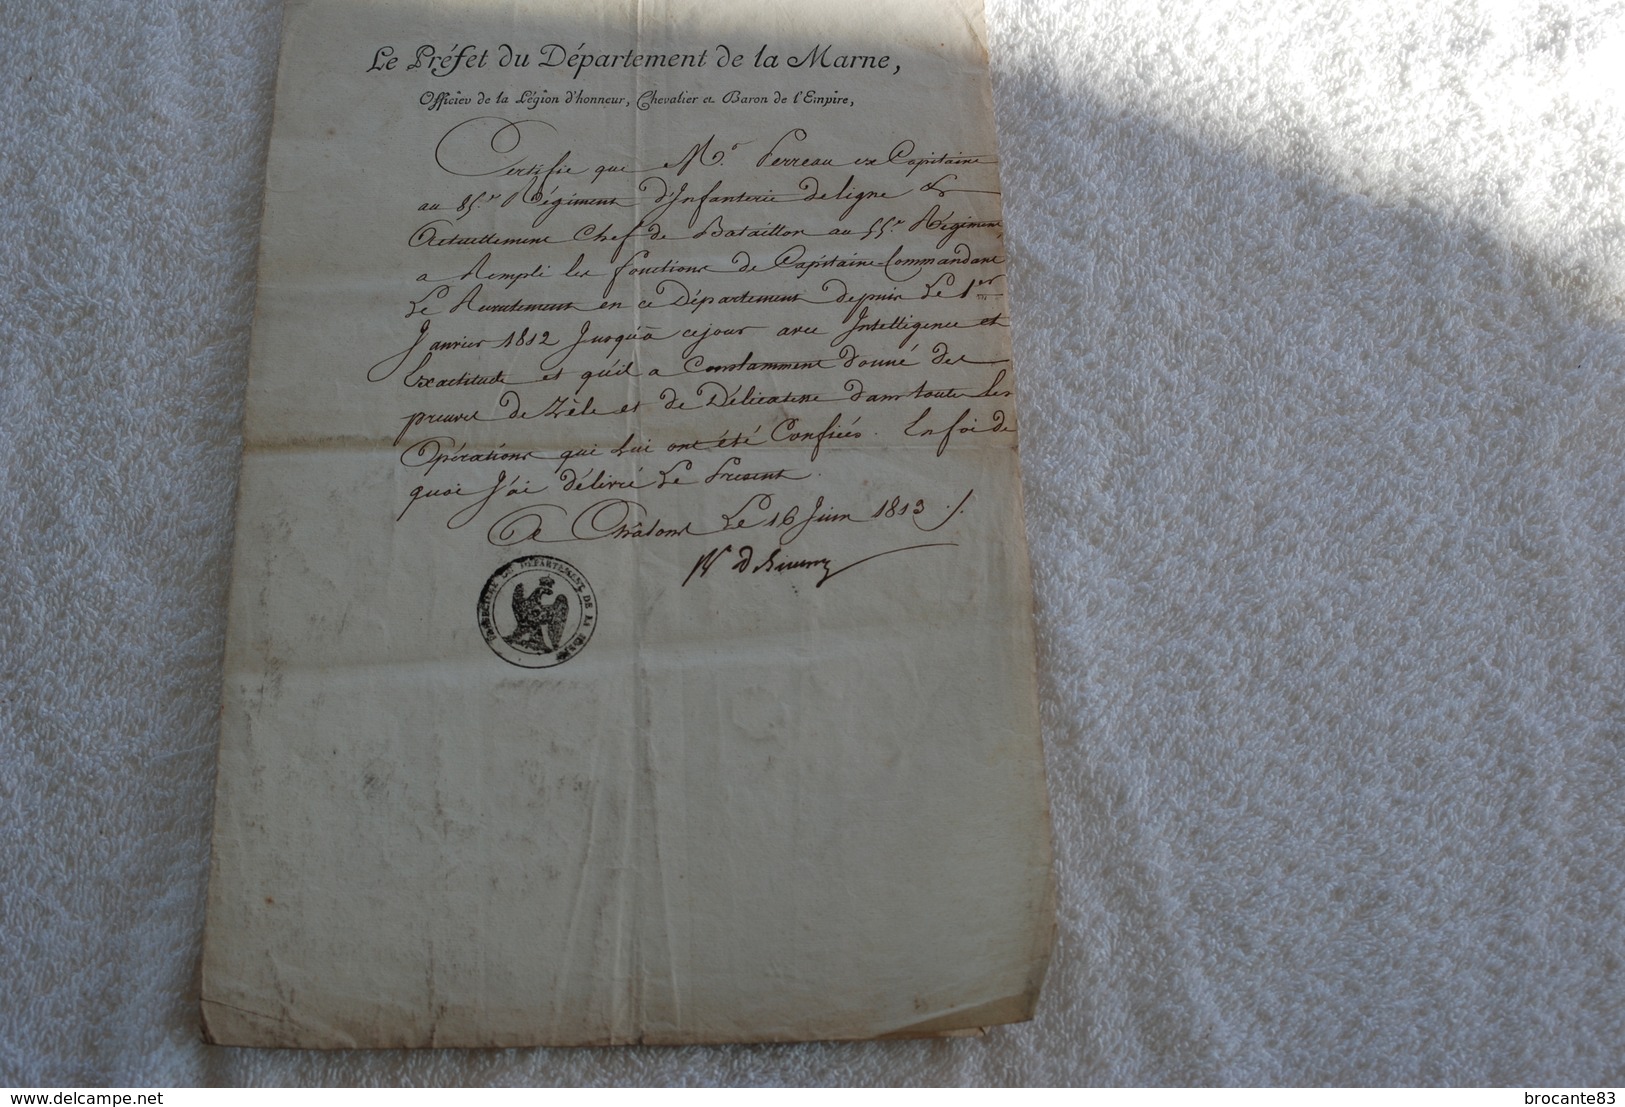 Le Préfet du Département de la Marne,
Officier de la Légion d'honneur, Chevalier et Baron de l'Empire,
Certifie que Mr. Perreau ex Capitaine
au 85.e Régiment d'Infanterie de ligne &
Actuellement Chef de Bataillon au 55.e Régiment,
a Rempli les fonctions de Capitaine-Commandant
Le Recrutement en ce Département depuis Le 1er
Janvier 1812 Jusqu'à cejour avec Intelligence et
Exactitude et qu'il a Constamment donné des
preuves de Zèle et de Délicatesse dans toutes Les
Opérations qui Lui ont été Confiées. En foi de
quoi J'ai délivré Le Présent.
A Châlons Le 16 Juin 1813 ./.
PRÉFECTURE DU DÉPARTEMENT DE LA MARNE
delcampe.net
brocante83